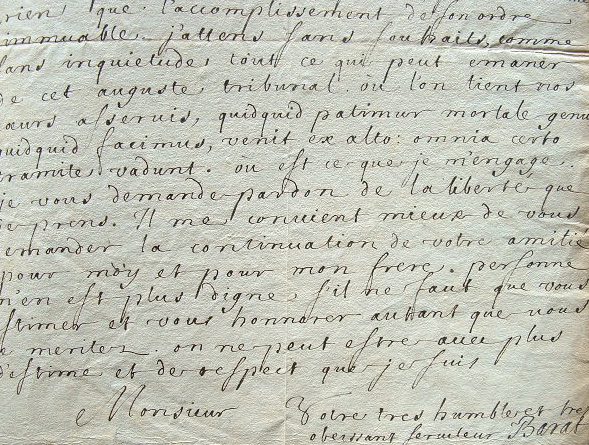 rien que l'accomplissement de son ordre
immuable. j'attens sans souhaits, comme
sans inquietude, tout ce qui peut emaner
de cet auguste tribunal. où l'on tient nos
cœurs asservis, quidquid patimur mortale genu
quidquid facimus, venit ex alto: omnia certo
tramite vadunt. où est ce que je m'engage..
je vous demande pardon de la liberté que
je prens. Il me convient mieux de vous
demander la continuation de votre amitié
pour moy et pour mon frere. personne
n'en est plus digne, s'il ne faut que vous
estimer et vous honnorer autant que vous
le meritez. on ne peut estre avec plus
d'estime et de respect que je suis
Monsieur
Votre tres humble et tres
obeissant serviteur Barat